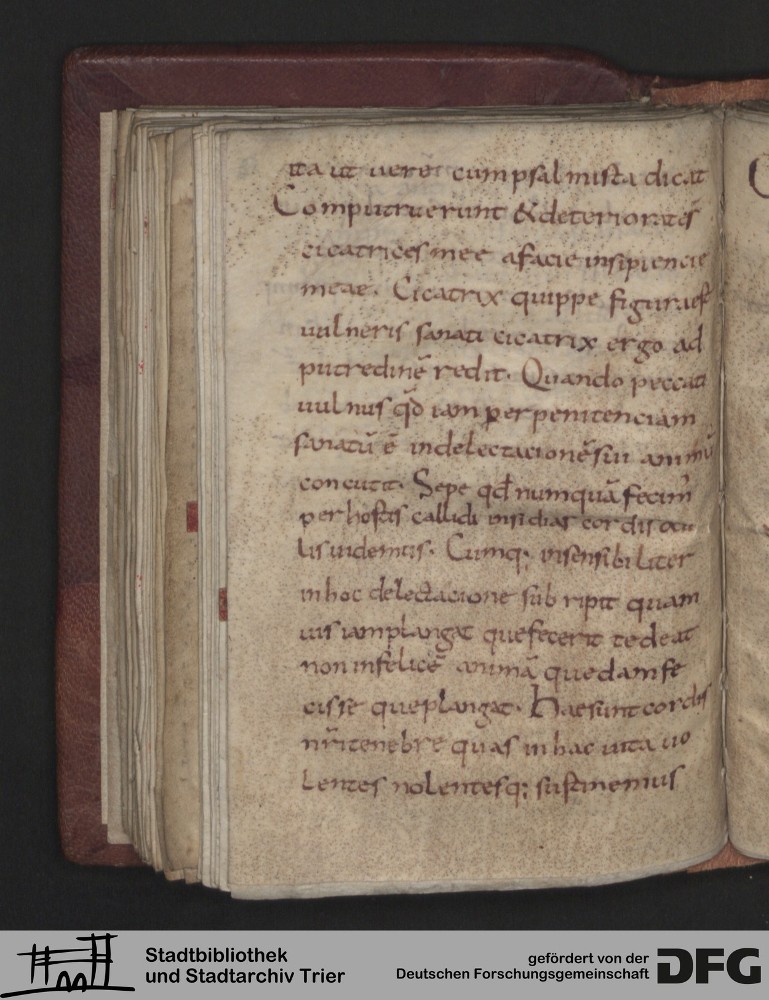 ita ut vere cum psalmista dicat
Computruerunt & deteriorates
cicatrices mee afacie insipiencie
meae. Cicatrix quippe figura est
vulneris sanati cicatrix ergo ad
putredinē redit. Quando peccati
vulnus qd̄ iam per penitenciam
sanatū ē indelectacionē sui animū
concutit. Sepe qd̄ numquā fecim᾽
per hostis callidi insidias cordis ocu
lis videmus. Cumq; insensibiliter
inhoc delectacione subripit quam
vis iam plangat que fecerit tedeat
non infelicē animā quedam fe
cisse que plangat. Hae sunt cordis
nr̄i tenebre quas in hac vita vo
lentes nolentesq; sustinemus
Stadtbibliothek
und Stadtarchiv Trier
gefördert von der
Deutschen Forschungsgemeinschaft
DFG